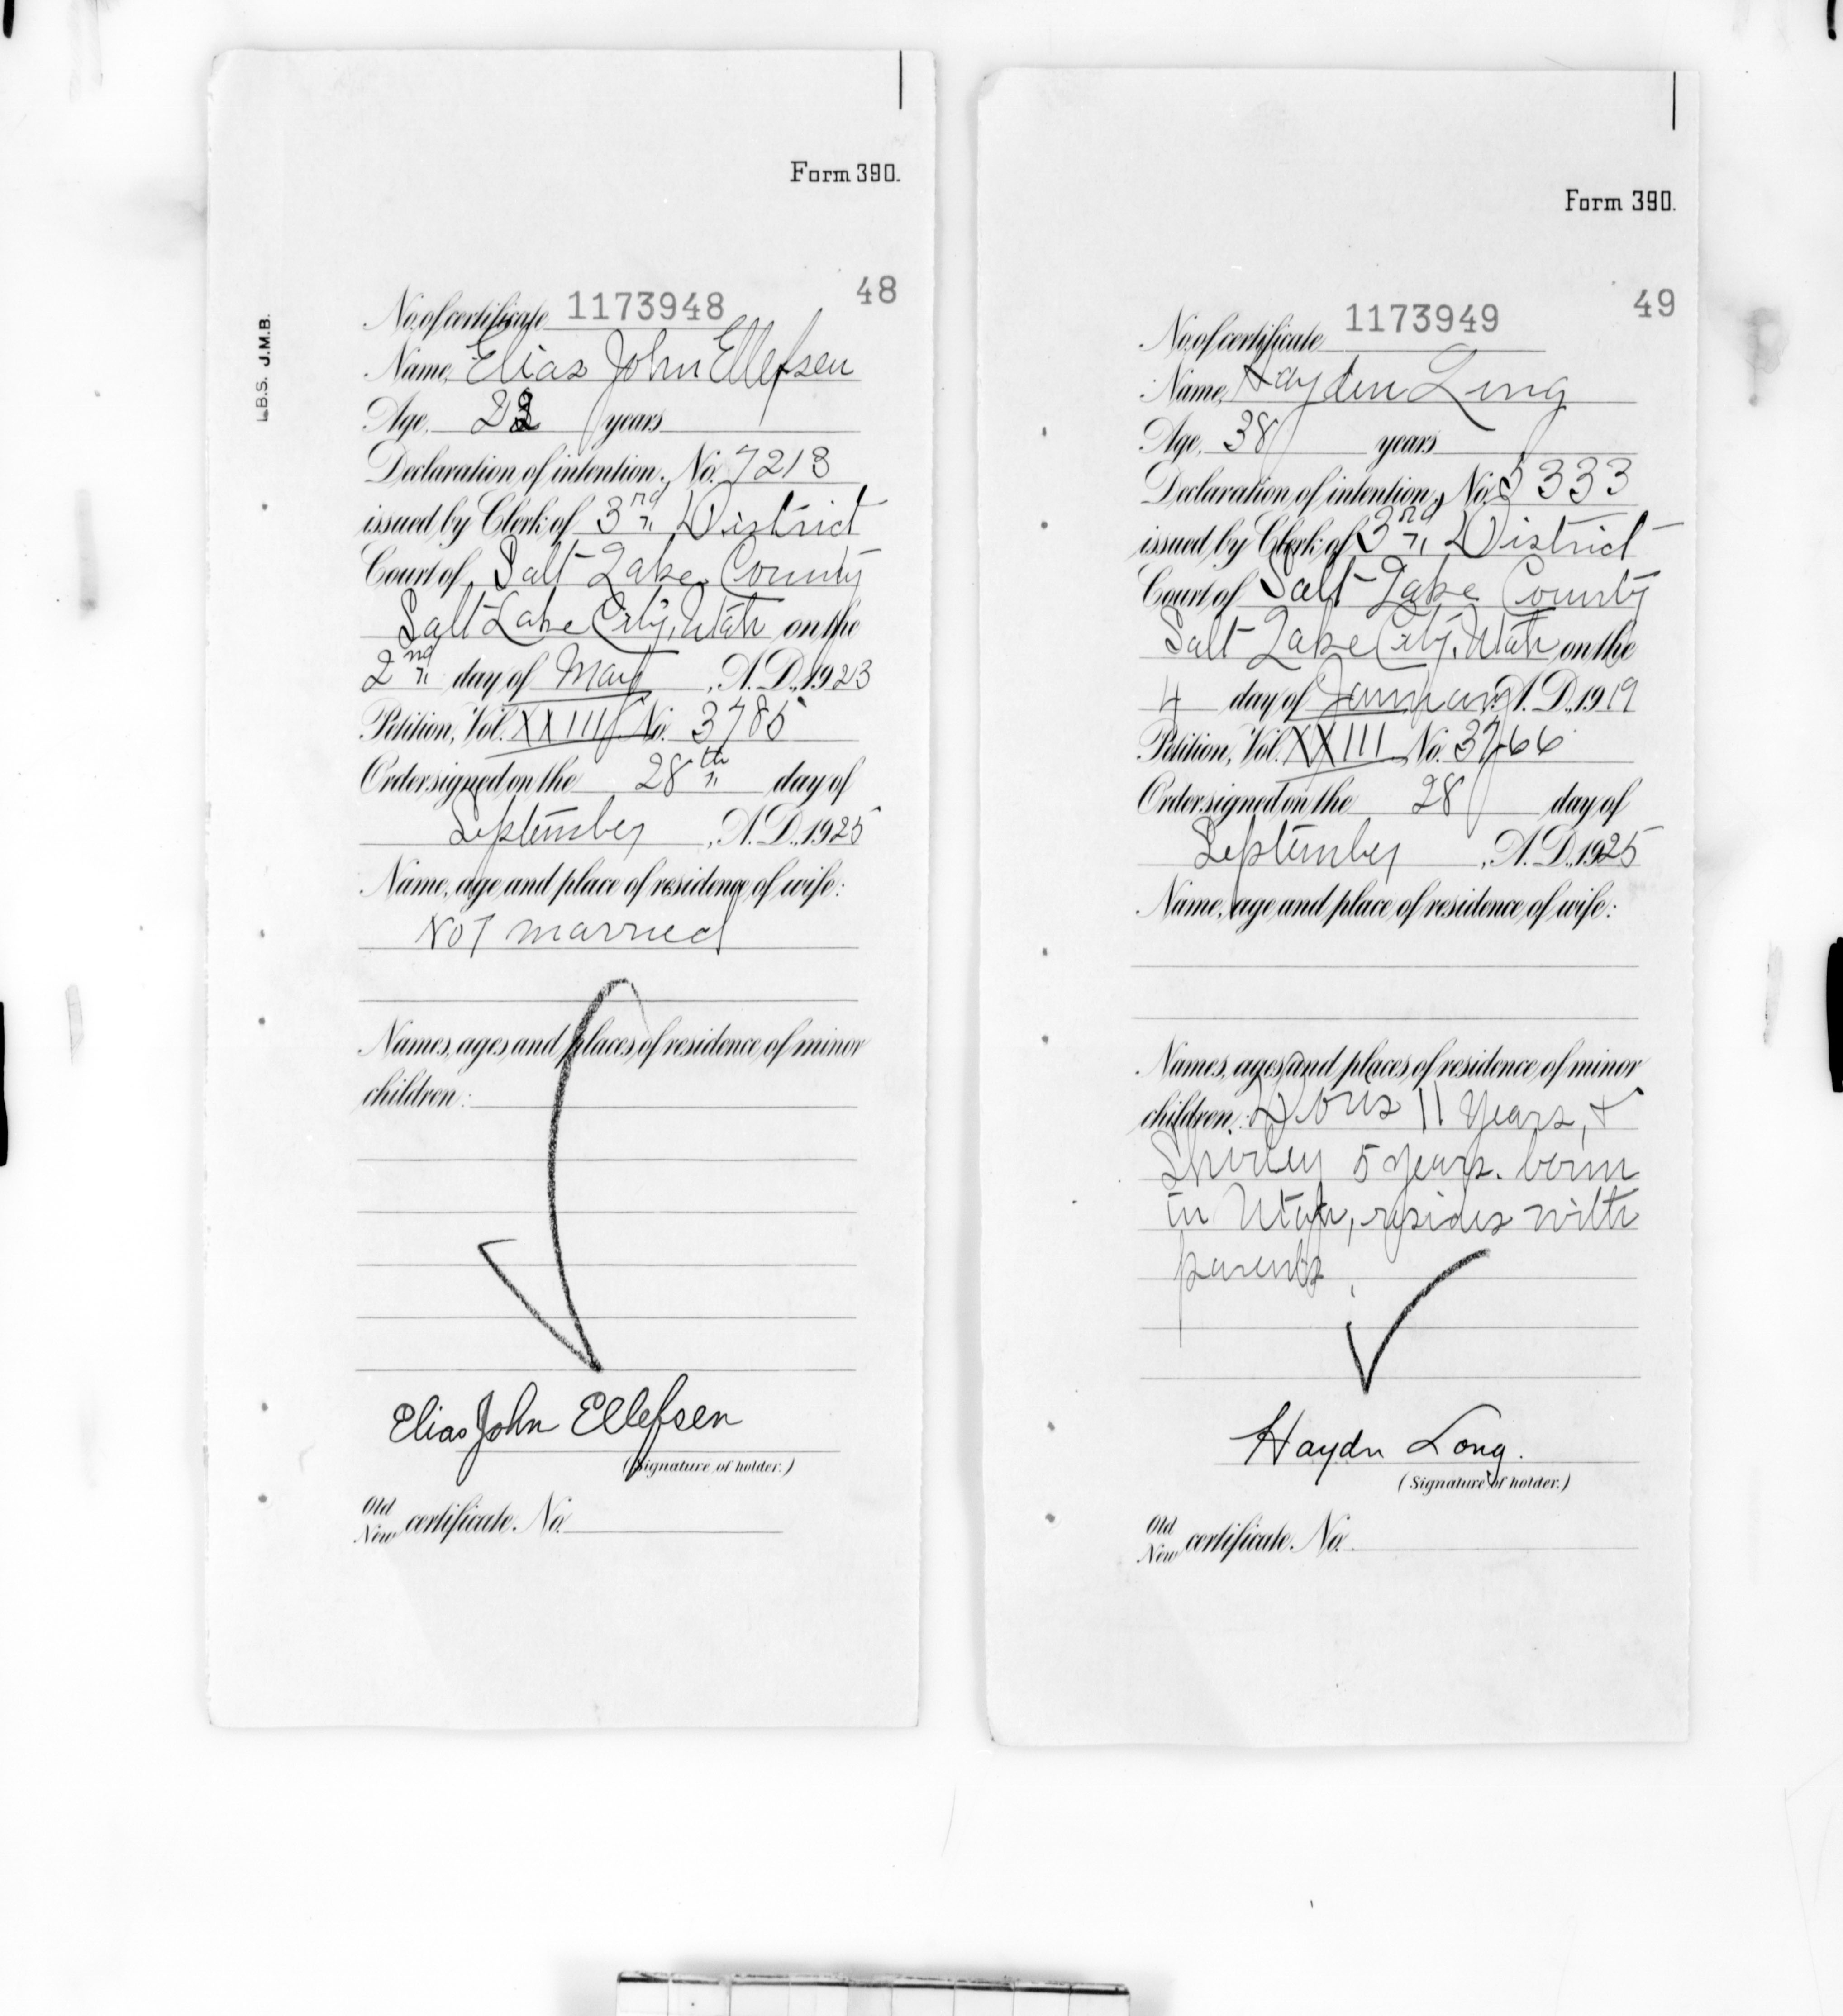 L.B.S. J.M.B.
Form 390.
48
No. of certificate 1173948
Name, Elias John Ellefsen
Age, 23 years
Declaration of intention, No. 7213
issued by Clerk of 3rd District
Court of Salt Lake County
Salt Lake City, Utah on the
2nd day of May, A.D., 1923
Petition, Vol. XXIII No. 3785
Order signed on the 28th day of
September, A.D., 1925
Name, age and place of residence of wife:
Not married
Names, ages and places of residence of minor
children:
Elias John Ellefsen
(Signature of holder.)
Old
New certificate. No.
Form 390.
49
No. of certificate 1173949
Name, Hayden Long
Age, 38 years
Declaration of intention, No. 5333
issued by Clerk of 3rd District
Court of Salt Lake County
Salt Lake City, Utah on the
4 day of January, A.D., 1919
Petition, Vol. XXIII No. 3766
Order signed on the 28 day of
September, A.D., 1925
Name, age and place of residence of wife:
Names, ages and places of residence of minor
children: Doris 11 years, +
Shirley 5 years. born
in Utah, resides with
parents.
Haydn Long.
(Signature of holder.)
Old
New certificate. No.